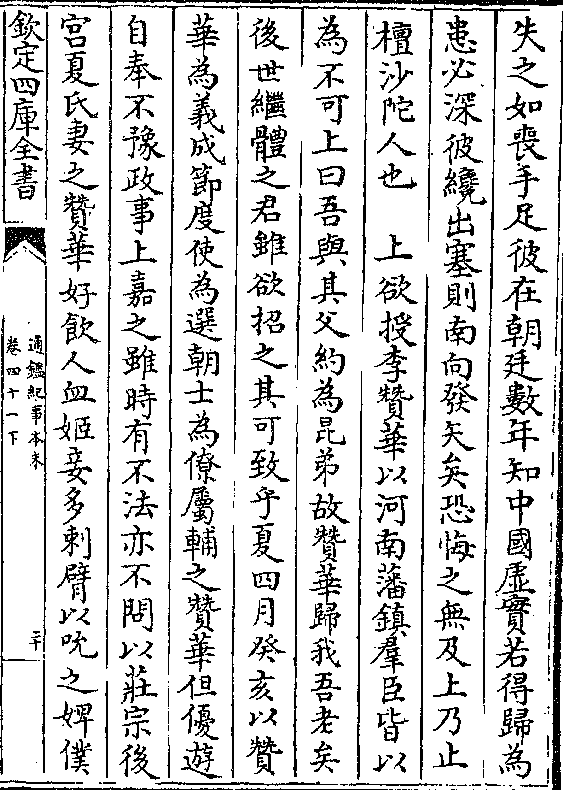 失之如喪手足彼在朝廷數年知中國虛實若得歸為
患必深彼纔出塞則南向發矢矣恐悔之無及上乃止
檀沙陀人也　上欲授李贊華以河南藩鎮羣臣皆以
為不可上曰吾與其父約為昆弟故贊華歸我吾老矣
後世繼體之君雖欲招之其可致乎夏四月癸亥以贊
華為義成節度使為選朝士為僚屬輔之贊華但優遊
自奉不豫政事上嘉之雖時有不法亦不問以莊宗後
宮夏氏妻之贊華好飲人血姬妾多刺臂以吮之婢僕
欽定四庫全書
通鑑紀事本末
卷四十一下
二十